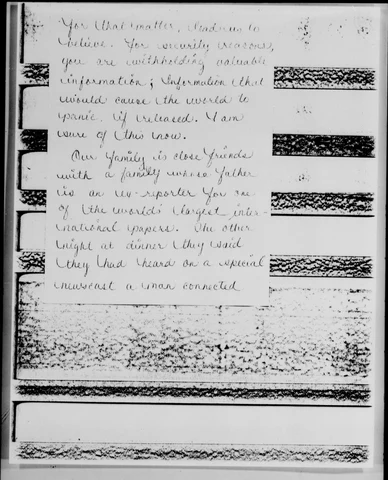 for that matter, lead us to
believe. For security reasons,
you are withholding valuable
information; Information that
would cause the world to
panic if released. I am
sure of this now.
Our family is close friends
with a family whose father
is an ex-reporter for one
of the world's largest inter-
national papers. The other
night at dinner they said
they had heard on a special
newscast a man connected